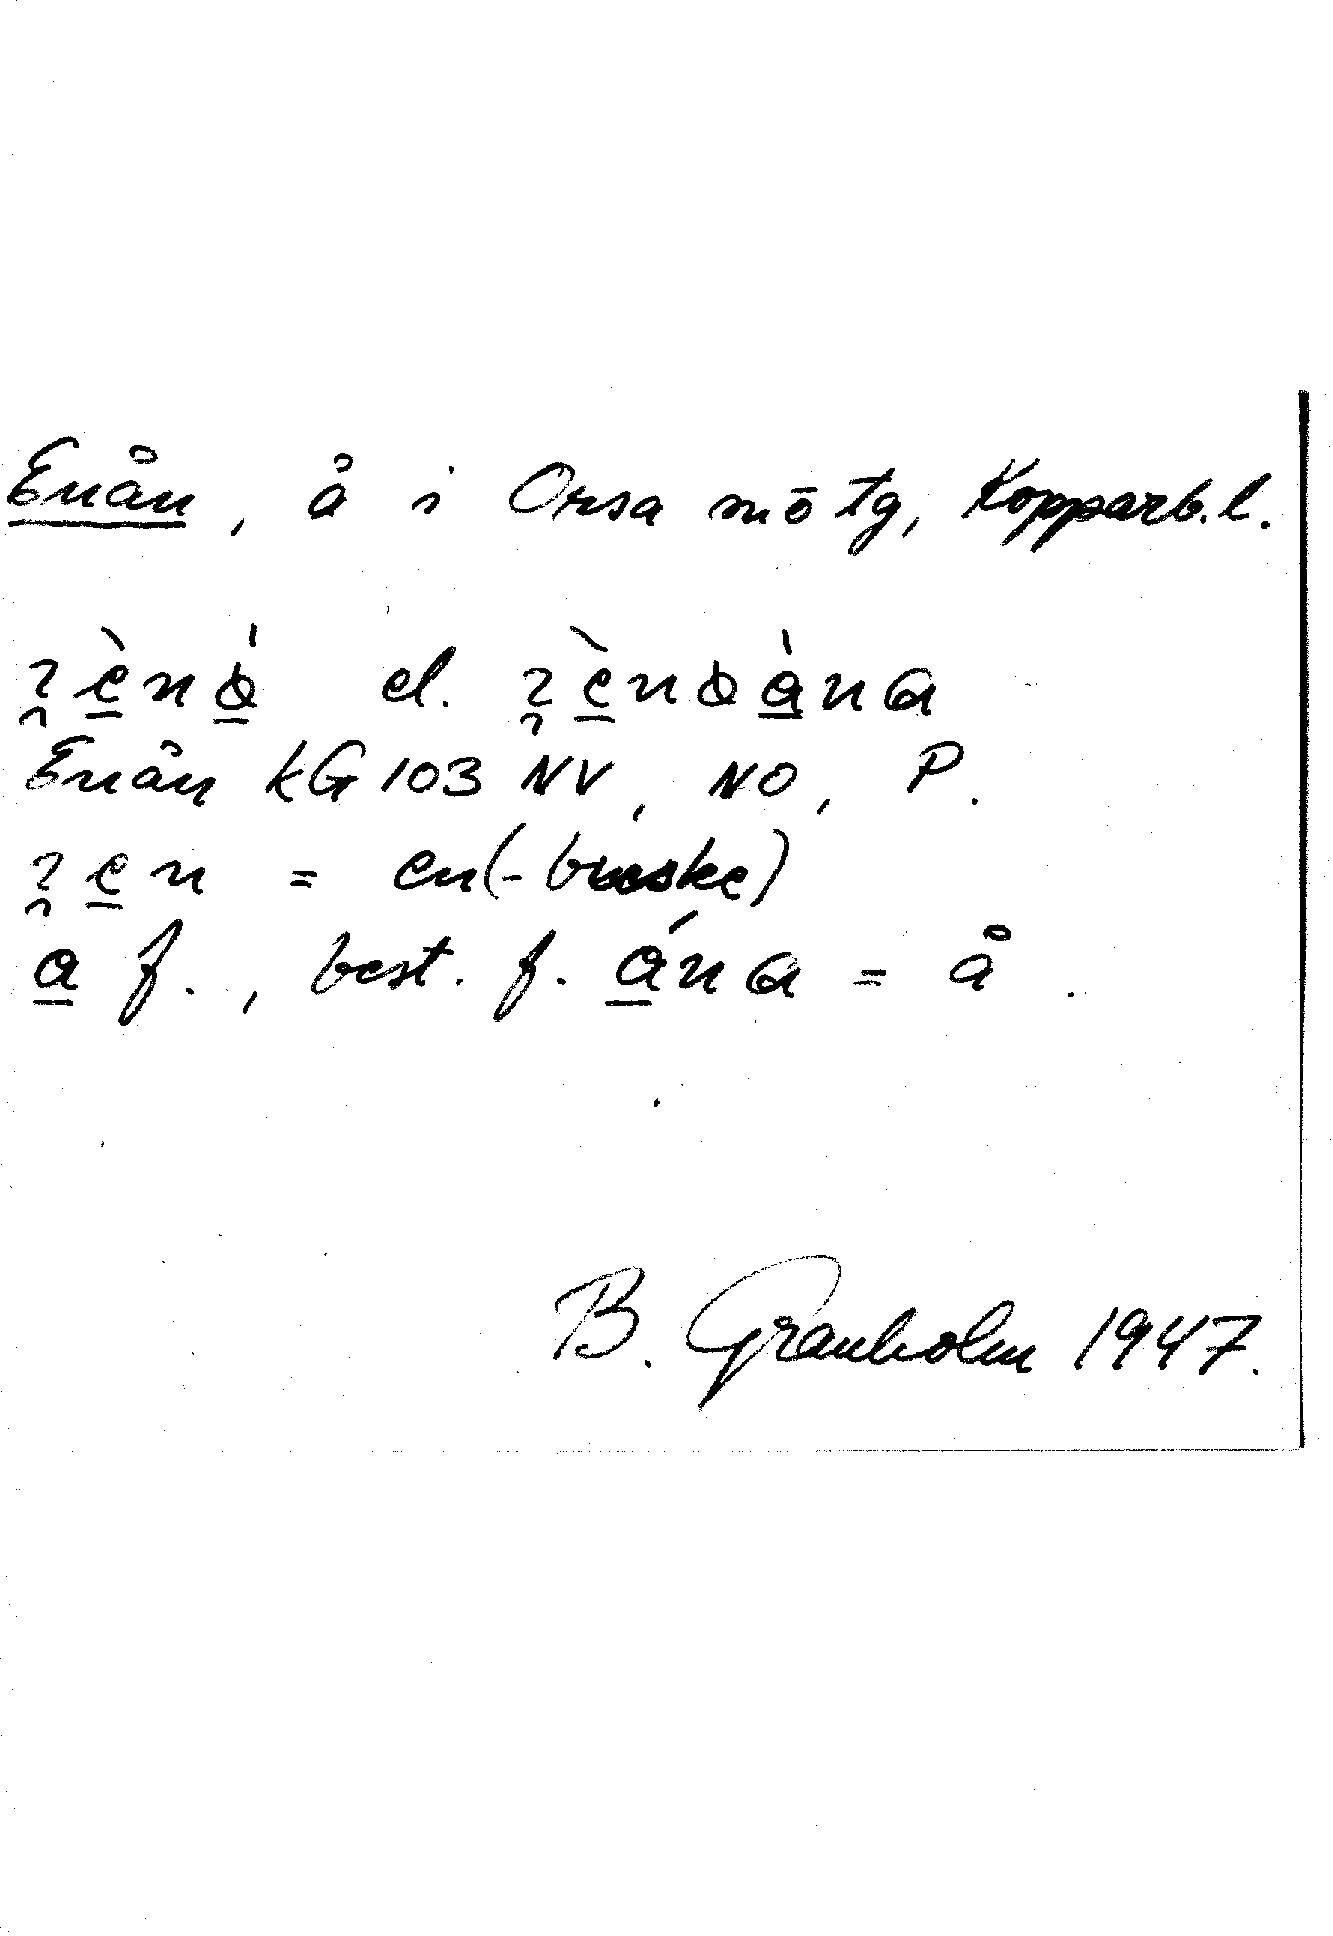 Enån, å i Orsa mō tg, Kopparb. l.
el.
Enån KG 103 NV, NO, P.
= en(-buske)
a f., best. f. ána = å.
B. Granholm 1947.